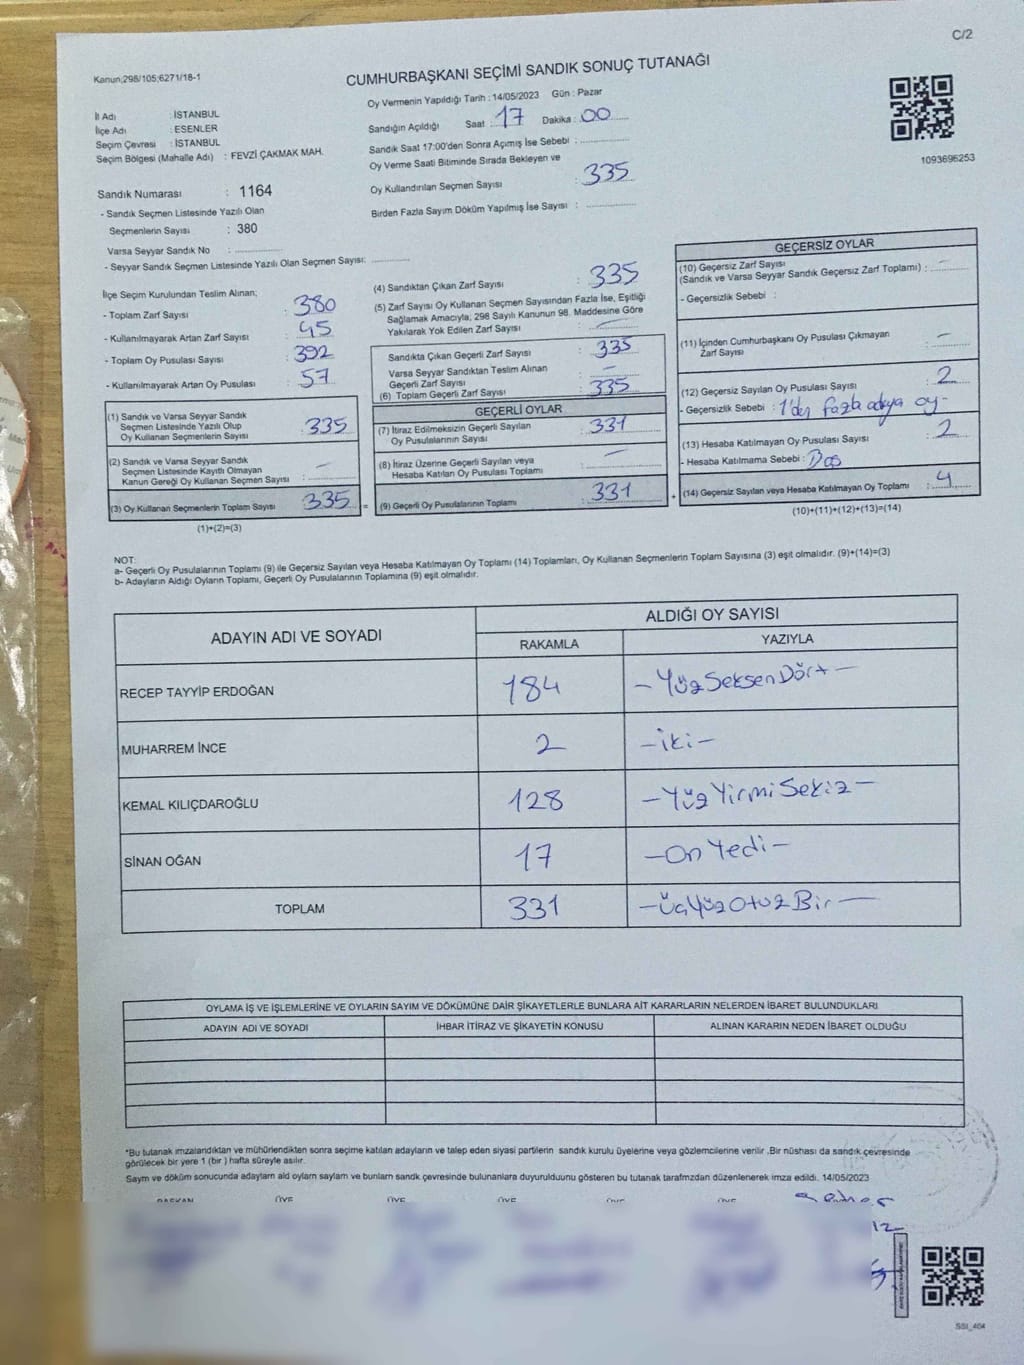 C/2
Kanun;298/105;6271/18-1
CUMHURBAŞKANI SEÇİMİ SANDIK SONUÇ TUTANAĞI
1093696253
İl Adı : İSTANBUL
İlçe Adı : ESENLER
Seçim Çevresi : İSTANBUL
Seçim Bölgesi (Mahalle Adı) : FEVZİ ÇAKMAK MAH.
Sandık Numarası : 1164
- Sandık Seçmen Listesinde Yazılı Olan
Seçmenlerin Sayısı : 380
Varsa Seyyar Sandık No : ..............
- Seyyar Sandık Seçmen Listesinde Yazılı Olan Seçmen Sayısı: ............
Oy Vermenin Yapıldığı Tarih : 14/05/2023 Gün : Pazar
Sandığın Açıldığı Saat : 17 Dakika : 00
Sandık Saat 17:00'den Sonra Açımış İse Sebebi : ..............
Oy Verme Saati Bitiminde Sırada Bekleyen ve
Oy Kullandırılan Seçmen Sayısı : 335
Birden Fazla Sayım Döküm Yapılmış İse Sayısı : ..............
İlçe Seçim Kurulundan Teslim Alınan;
- Toplam Zarf Sayısı : 380
- Kullanılmayarak Artan Zarf Sayısı : 45
- Toplam Oy Pusulası Sayısı : 392
- Kullanılmayarak Artan Oy Pusulası : 57
(1) Sandık ve Varsa Seyyar Sandık
Seçmen Listesinde Yazılı Olup
Oy Kullanan Seçmenlerin Sayısı : 335
(2) Sandık ve Varsa Seyyar Sandık
Seçmen Listesinde Kayıtlı Olmayan
Kanun Gereği Oy Kullanan Seçmen Sayısı : -
(3) Oy Kullanan Seçmenlerin Toplam Sayısı : 335 =
(1)+(2)=(3)
(4) Sandıktan Çıkan Zarf Sayısı : 335
(5) Zarf Sayısı Oy Kullanan Seçmen Sayısından Fazla İse, Eşitliği
Sağlamak Amacıyla; 298 Sayılı Kanunun 98. Maddesine Göre
Yakılarak Yok Edilen Zarf Sayısı : -
Sandıkta Çıkan Geçerli Zarf Sayısı : 335
Varsa Seyyar Sandıktan Teslim Alınan
Geçerli Zarf Sayısı : -
(6) Toplam Geçerli Zarf Sayısı : 335
GEÇERLİ OYLAR
(7) İtiraz Edilmeksizin Geçerli Sayılan
Oy Pusulalarının Sayısı : 331
(8) İtiraz Üzerine Geçerli Sayılan veya
Hesaba Katılan Oy Pusulası Toplamı : -
(9) Geçerli Oy Pusulalarının Toplamı : 331 +
GEÇERSİZ OYLAR
(10) Geçersiz Zarf Sayısı
(Sandık ve Varsa Seyyar Sandık Geçersiz Zarf Toplamı) : -
- Geçersizlik Sebebi :
(11) İçinden Cumhurbaşkanı Oy Pusulası Çıkmayan
Zarf Sayısı : -
(12) Geçersiz Sayılan Oy Pusulası Sayısı : 2
- Geçersizlik Sebebi : 1'den fazla adaya oy-
(13) Hesaba Katılmayan Oy Pusulası Sayısı : 2
- Hesaba Katılmama Sebebi : Boş
(14) Geçersiz Sayılan veya Hesaba Katılmayan Oy Toplamı : 4
(10)+(11)+(12)+(13)=(14)
NOT:
a- Geçerli Oy Pusulalarının Toplamı (9) ile Geçersiz Sayılan veya Hesaba Katılmayan Oy Toplamı (14) Toplamları, Oy Kullanan Seçmenlerin Toplam Sayısına (3) eşit olmalıdır. (9)+(14)=(3)
b- Adayların Aldığı Oyların Toplamı, Geçerli Oy Pusulalarının Toplamına (9) eşit olmalıdır.
ADAYIN ADI VE SOYADI ALDIĞI OY SAYISI
RAKAMLA YAZIYLA
RECEP TAYYİP ERDOĞAN 184 -Yüz Seksen Dört-
MUHARREM İNCE 2 -iki-
KEMAL KILIÇDAROĞLU 128 -Yüz Yirmi Sekiz-
SİNAN OĞAN 17 -On Yedi-
TOPLAM 331 -Üç Yüz Otuz Bir-
OYLAMA İŞ VE İŞLEMLERİNE VE OYLARIN SAYIM VE DÖKÜMÜNE DAİR ŞİKAYETLERLE BUNLARA AİT KARARLARIN NELERDEN İBARET BULUNDUKLARI
ADAYIN ADI VE SOYADI İHBAR İTİRAZ VE ŞİKAYETİN KONUSU ALINAN KARARIN NEDEN İBARET OLDUĞU
*Bu tutanak imzalandıktan ve mühürlendikten sonra seçime katılan adayların ve talep eden siyasi partilerin sandık kurulu üyelerine veya gözlemcilerine verilir .Bir nüshası da sandık çevresinde
görülecek bir yere 1 (bir ) hafta süreyle asılır.
Sayım ve döküm sonucunda adayların aldı oyların sayları ve bunların sandık çevresinde bulunanlara duyurulduunu gösteren bu tutanak tarafmzdan düzenlenerek imza edildi. 14/05/2023
BAŞKAN ÜYE ÜYE ÜYE ÜYE ÜYE
12
SSI_404